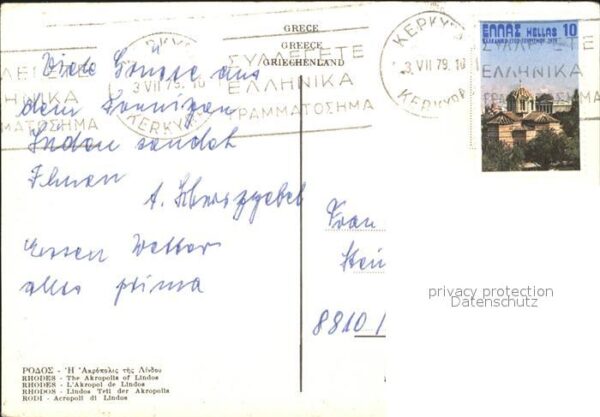 GRECE
GREECE
GRIECHENLAND
ΚΕΡΚΥΡΑ
3 VII 79. 10
ΚΕΡΚΥΡΑ
ΣΥΛΛΕΓΕΤΕ
ΕΛΛΗΝΙΚΑ
ΓΡΑΜΜΑΤΟΣΗΜΑ
ΕΛΛΑΣ HELLAS 10
Viele Grüsse aus
dem sonnigen
Süden sendet
Ihnen
Essen Wetter
alles prima
Frau
8810
privacy protection
Datenschutz
ΡΟΔΟΣ - Ἡ Ἀκρόπολις τῆς Λίνδου
RHODES - The Akropolis of Lindos
RHODES - L'Akropol de Lindos
RHODOS - Lindos Teil der Akropolis
RODI - Acropoli di Lindos